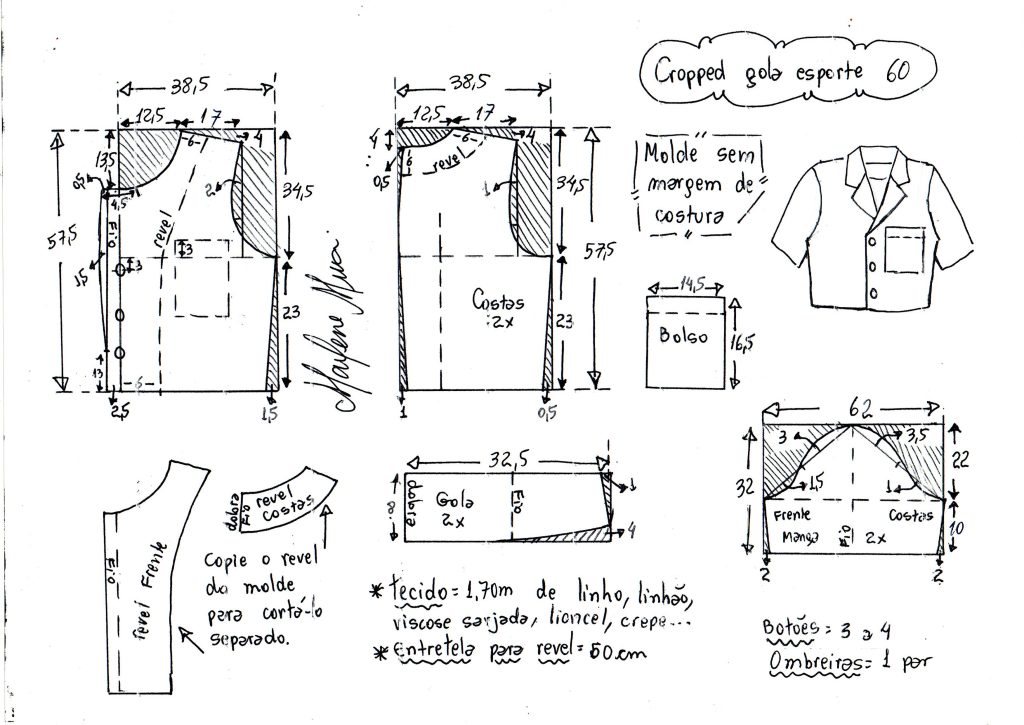 Cropped gola esporte 60
38,5
12,5
17
6
4
13,5
0,5
4,5
2
34,5
57,5
Fio
revel
3
3
1,5
23
13
6
2,5
1,5
Marlene Mukai
38,5
12,5
17
4
6
4
0,5
6
revel
1
34,5
57,5
Costas
2x
23
1
0,5
Molde sem
margem de
costura
14,5
Bolso
16,5
62
3
3,5
22
32
1,5
1
Frente
Costas
Manga
Fio
2x
10
2
2
32,5
8
dobra
Gola
2x
Fio
1
4
Fio
revel Frente
dobra
Fio
revel
costas
Copie o revel
do molde
para cortá-lo
separado.
* Tecido = 1,70m de linho, linhão,
viscose sarjada, liocel, crepe...
* Entretela para revel = 60 cm
Botões = 3 a 4
Ombreiras = 1 par